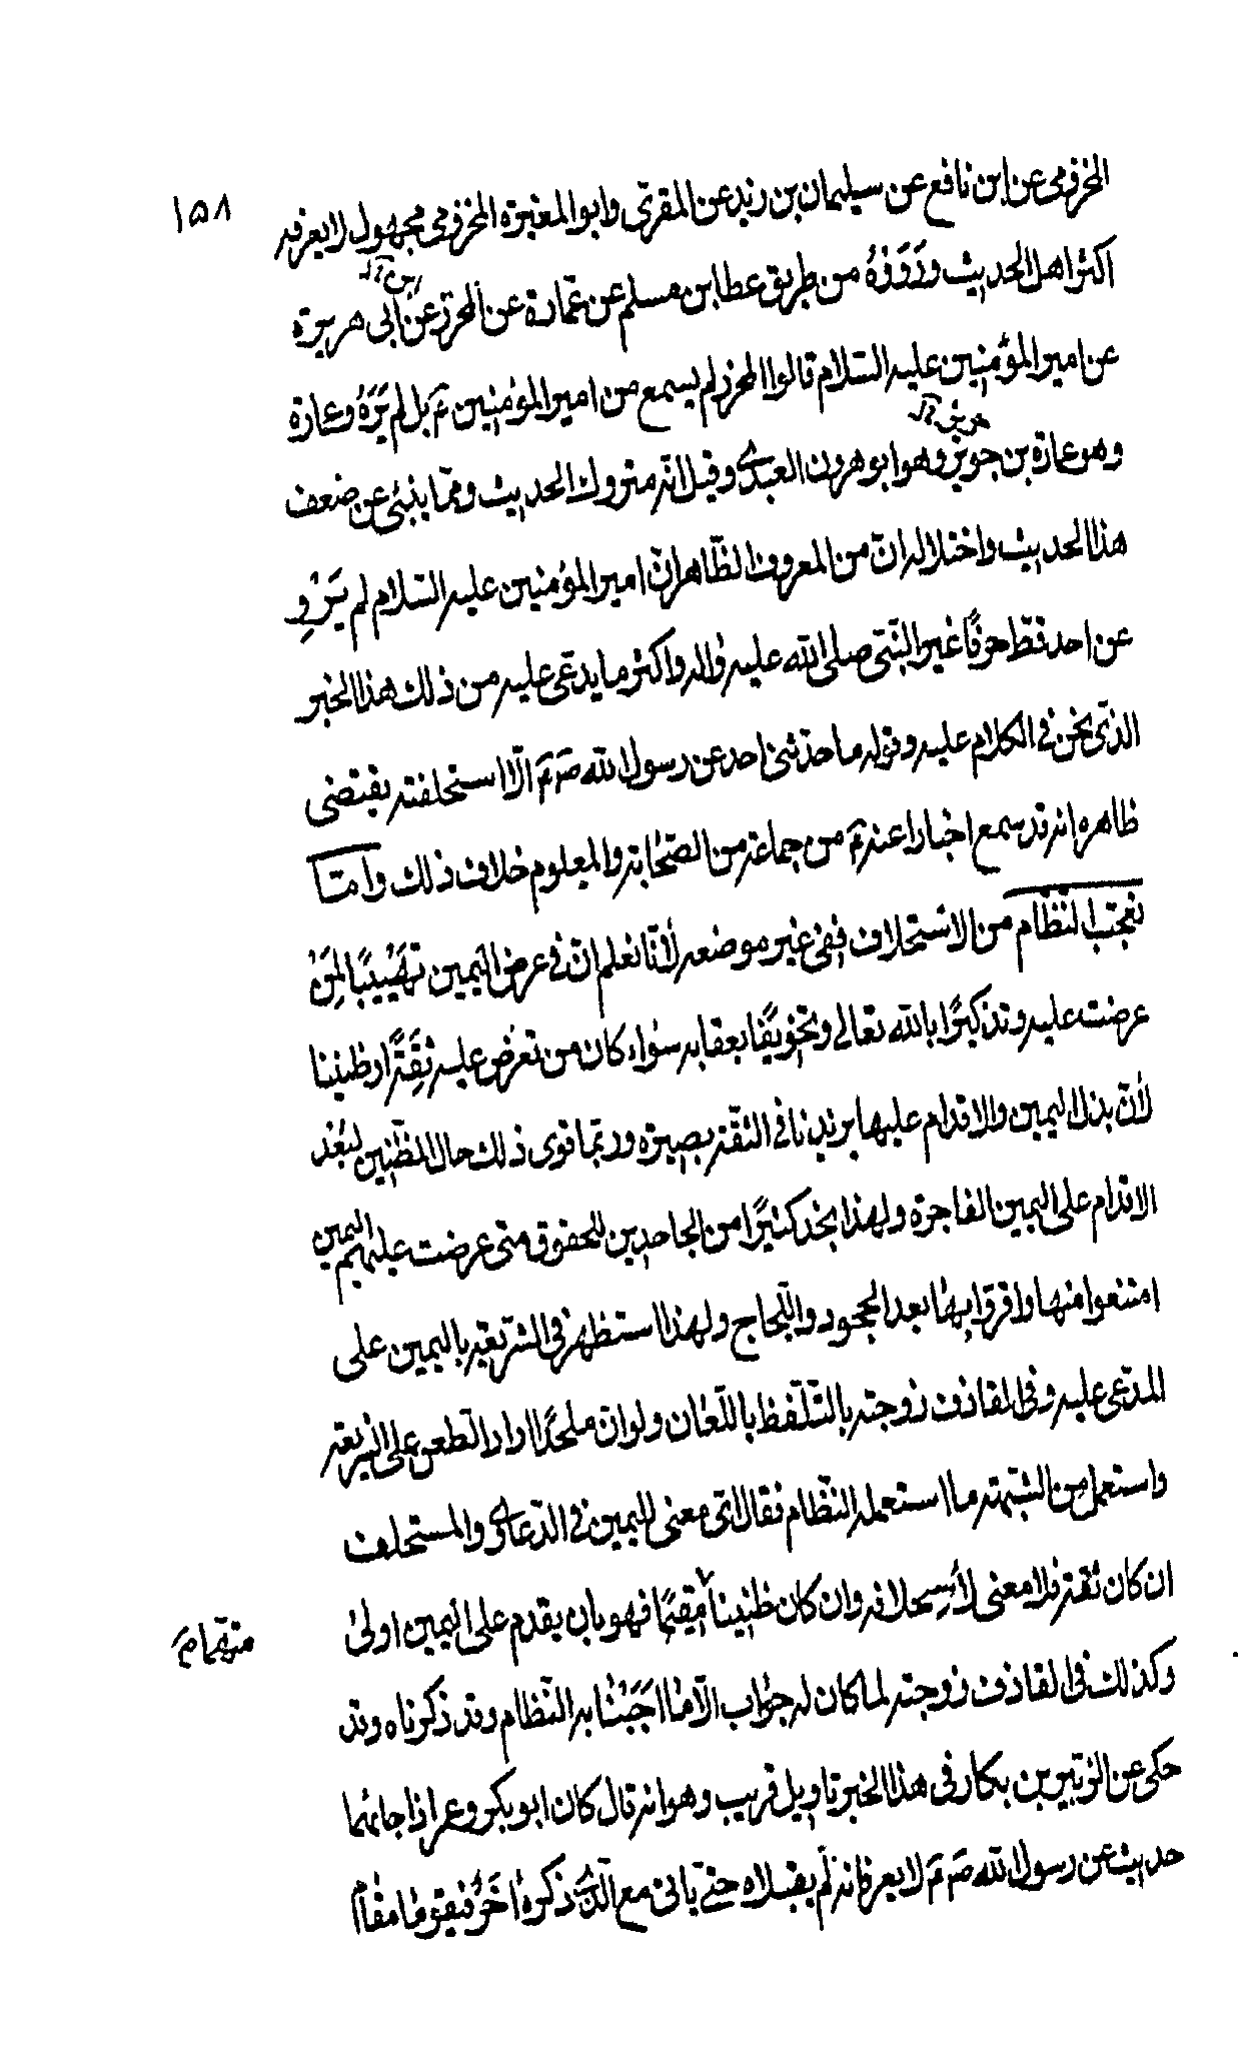 ١٥٨
المخزومی عن ابن نافع عن سیلیمان بن زید عن المقری وابو المغیرة المخزومی مجهول لا یعرفه
اکثر اهل الحدیث ورَوَوْهُ من طریق عطا بن مسلم عن عُمارة عن المحرز عن ابی هریرة
عن امیر المؤمنین علیه السّلام قالوا المحرز لم یسمع من امیر المؤمنین عَ بل لم یَرَهُ وعمارة
وهو عمارة بن جویز وهو ابو هرون العبدی وقیل انّه متروك الحدیث وممّا ینبئی عن ضعف
هذا الحدیث واختلاله انّ من المعروف الظّاهر انّ امیر المؤمنین علیه السّلام لم یَرْوِ
عن احد قط حرفًا غیر النّبّی صلی الله علیه واله واکثر ما یدعی علیه من ذلك هذا الخبر
الذّی نحن فی الکلام علیه وقوله ما حدّثنی احد عن رسول الله صَ مَ الّا استحلفته یقتضی
ظاهره انه قد سمع اخبارا عنه مَ من جماعة من الصّحابة والمعلوم خلاف ذلك وامّا
تعجّب النّظّام من الاستحلاف ففی غیر موضعه لأنّا نعلم انّ فی عرض الیمین تَهَیْیبًا لِمَنْ
عرضت علیه وتذکیرًا بالله تعالی وتخویفًا بعقابه سواء کان من تعرض علیه ثِقَةً او ظنینا
لأنّ بذل الیمین والاقدام علیها یریدنا فی الثقة بصیرة وربّما قوی ذلك حال الظّنین لبُعْد
الاقدام علی الیمین الفاجرة ولهذا نجد کثیرًا من الجاحدین للحقوق متی عرضت علیهم الیمین
امتنعوا منها واقرّوا بها بعد الجحود واللّجاج ولهذا استظهر فی الشّریعة بالیمین علی
المدّعی علیه وفی القاذف زوجته بالتّلفّظ باللّعان ولو انّ ملحدًا اراد الطعن علی الشریعة
واستعمل من الشّبهة ما استعمله النّظّام فقال ایّ معنی للیمین فی الدّعاوی والمستحلف
ان کان ثقة فلا معنی لأستحلافه وان کان ظنینا مُقیمًا فهو بان یقدم علی الیمین اولی
متهمًا مَ
وکذلك فی القاذف زوجته لما کان له جواب الّا ما اجَبْنا به النّظام وقد ذکرناه وقد
حکی عن الزّبیر بن بکار فی هذا الخبر تاویل قریب وهو انه قال کان ابو بکر وعمر اذا جائهما
حدیث عن رسول الله صَ مَ لا یعرفانه لم یقبلاه حتّی یأتی مع الّذی ذکرهُ اخَرُ فیقوما مقام